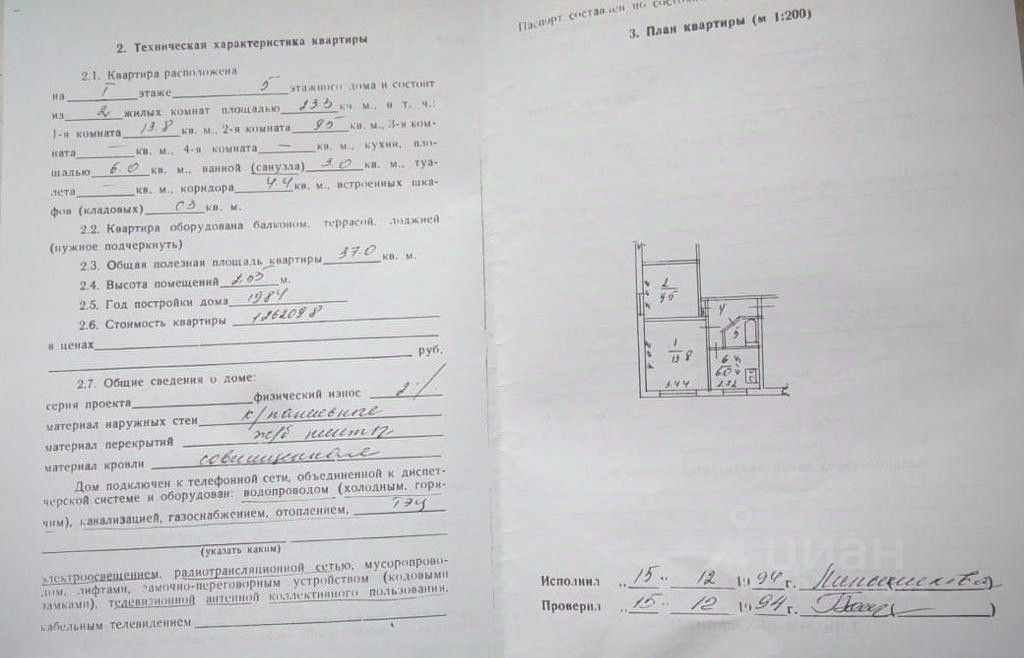 2. Техническая характеристика квартиры
2.1. Квартира расположена
на I этаже 5 этажного дома и состоит
из 2 жилых комнат площадью 23.3 кв. м., в т. ч.:
1-я комната 13.8 кв. м., 2-я комната 9.5 кв. м., 3-я ком-
ната — кв. м., 4-я комната — кв. м., кухни, пло-
щадью 6.0 кв. м., ванной (санузла) 3.0 кв. м., туа-
лета — кв. м., коридора 4.4 кв. м., встроенных шка-
фов (кладовых) 0.3 кв. м.
2.2. Квартира оборудована балконом, террасой, лоджией
(нужное подчеркнуть)
2.3. Общая полезная площадь квартиры 37.0 кв. м.
2.4. Высота помещений 2.55 м.
2.5. Год постройки дома 1984
2.6. Стоимость квартиры 1262098
в ценах
руб.
2.7. Общие сведения о доме:
серия проекта физический износ 2%
материал наружных стен к/панельные
материал перекрытий ж/б плиты
материал кровли совмещенная
Дом подключен к телефонной сети, объединенной к диспет-
черской системе и оборудован: водопроводом (холодным, горя-
чим), канализацией, газоснабжением, отоплением, ТЭЦ
(указать каким)
электроосвещением, радиотрансляционной сетью, мусоропрово-
дом, лифтами, замочно-переговорным устройством (кодовыми
замками), телевизионной антенной коллективного пользования,
кабельным телевидением
Паспорт составлен по
3. План квартиры (м 1:200)
2
9.5
4
5
1
13.8
6
6.0
3.44
2.32
циан
Исполнил „15" 12 1994 г.
Проверил „15" 12 1994 г. )